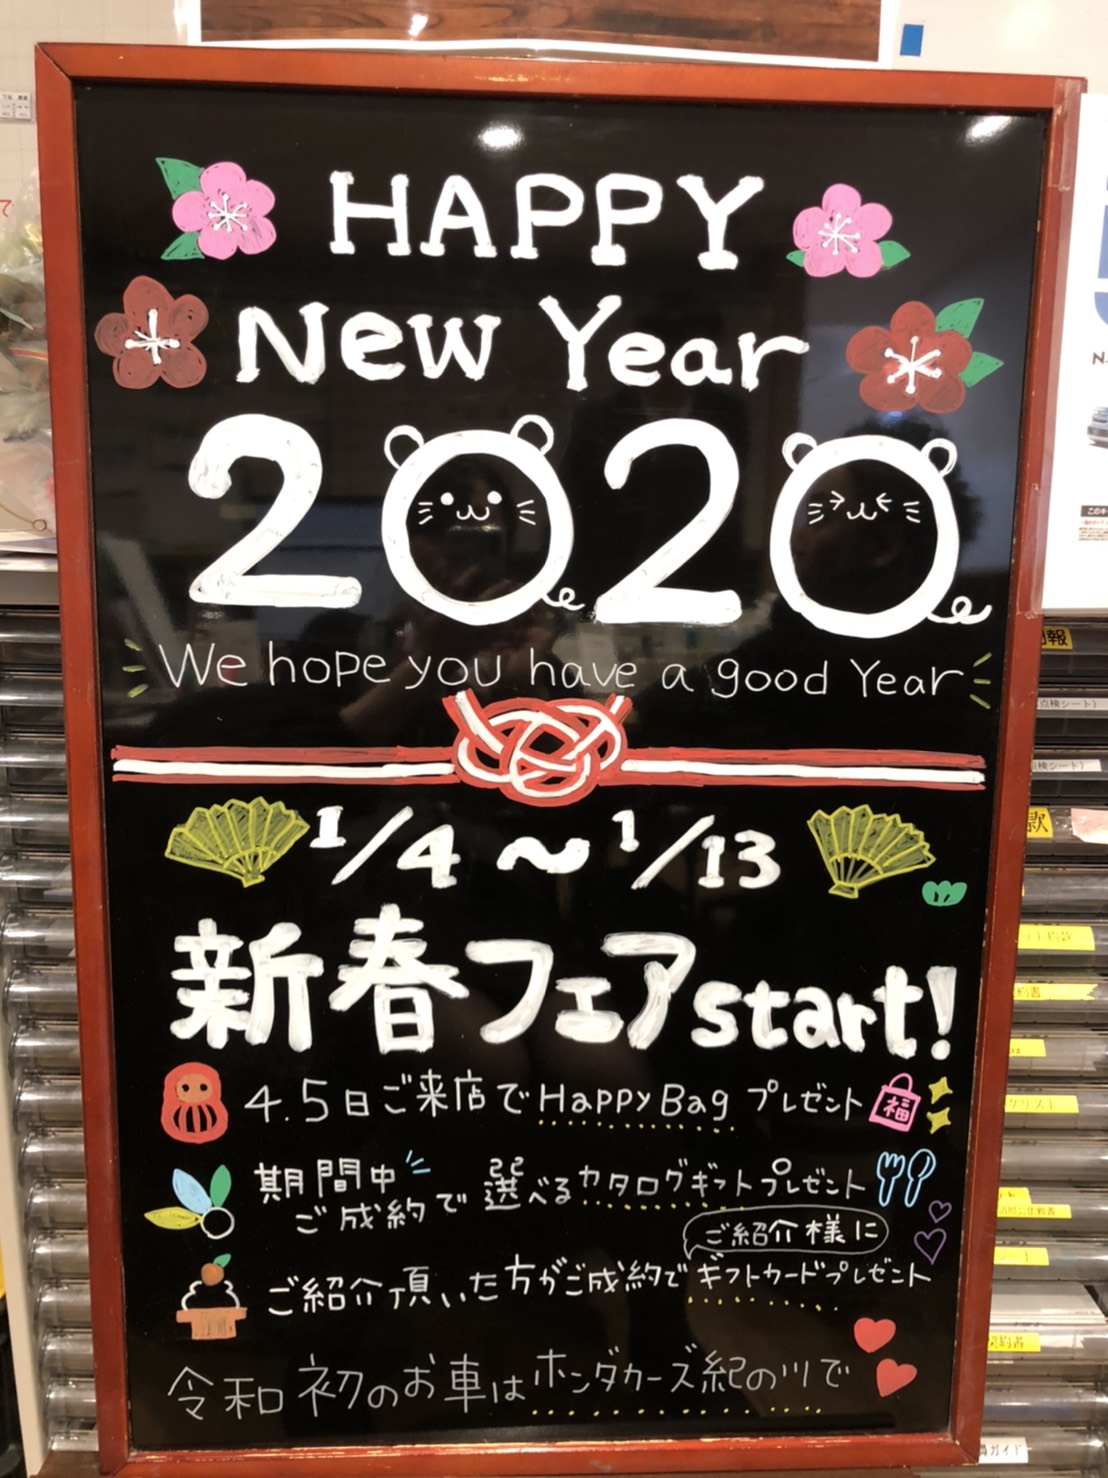 HAPPY
New Year
2020
We hope you have a good Year
1/4～1/13
新春フェアstart!
4.5日ご来店でHappy Bag プレゼント
福
期間中
ご成約で選べるカタログギフトプレゼント
ご紹介様に
ご紹介頂いた方がご成約でギフトカードプレゼント
令和初のお車はホンダカーズ紀の川で